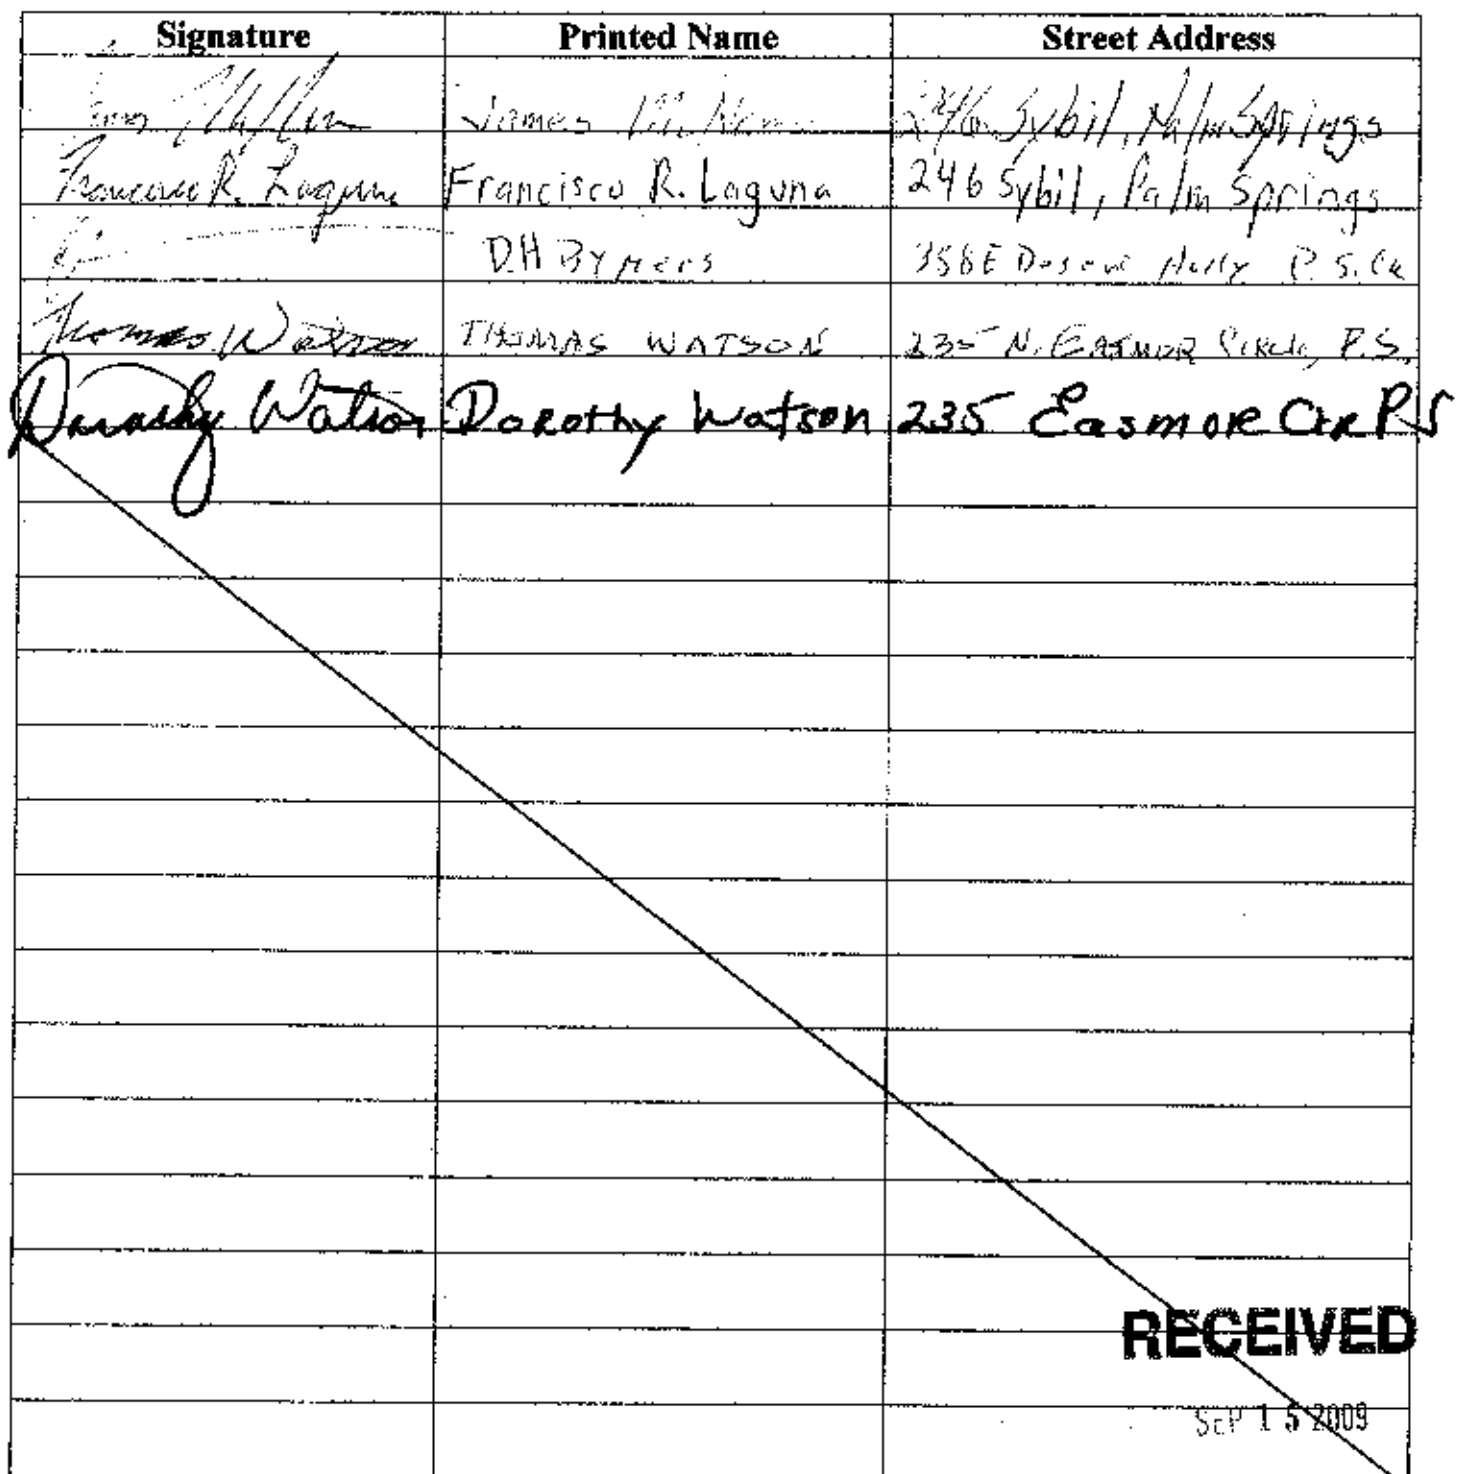 Signature Printed Name Street Address
James 246 Sybil, Palm Springs
Francisco R. Laguna Francisco R. Laguna 246 Sybil, Palm Springs
D.H Bymers E P.S. Ca
Thomas Watson THOMAS WATSON 235 N. Circle, P.S.
Dorothy Watson Dorothy Watson 235 Easmore Cir PS
RECEIVED
SEP 15 2009